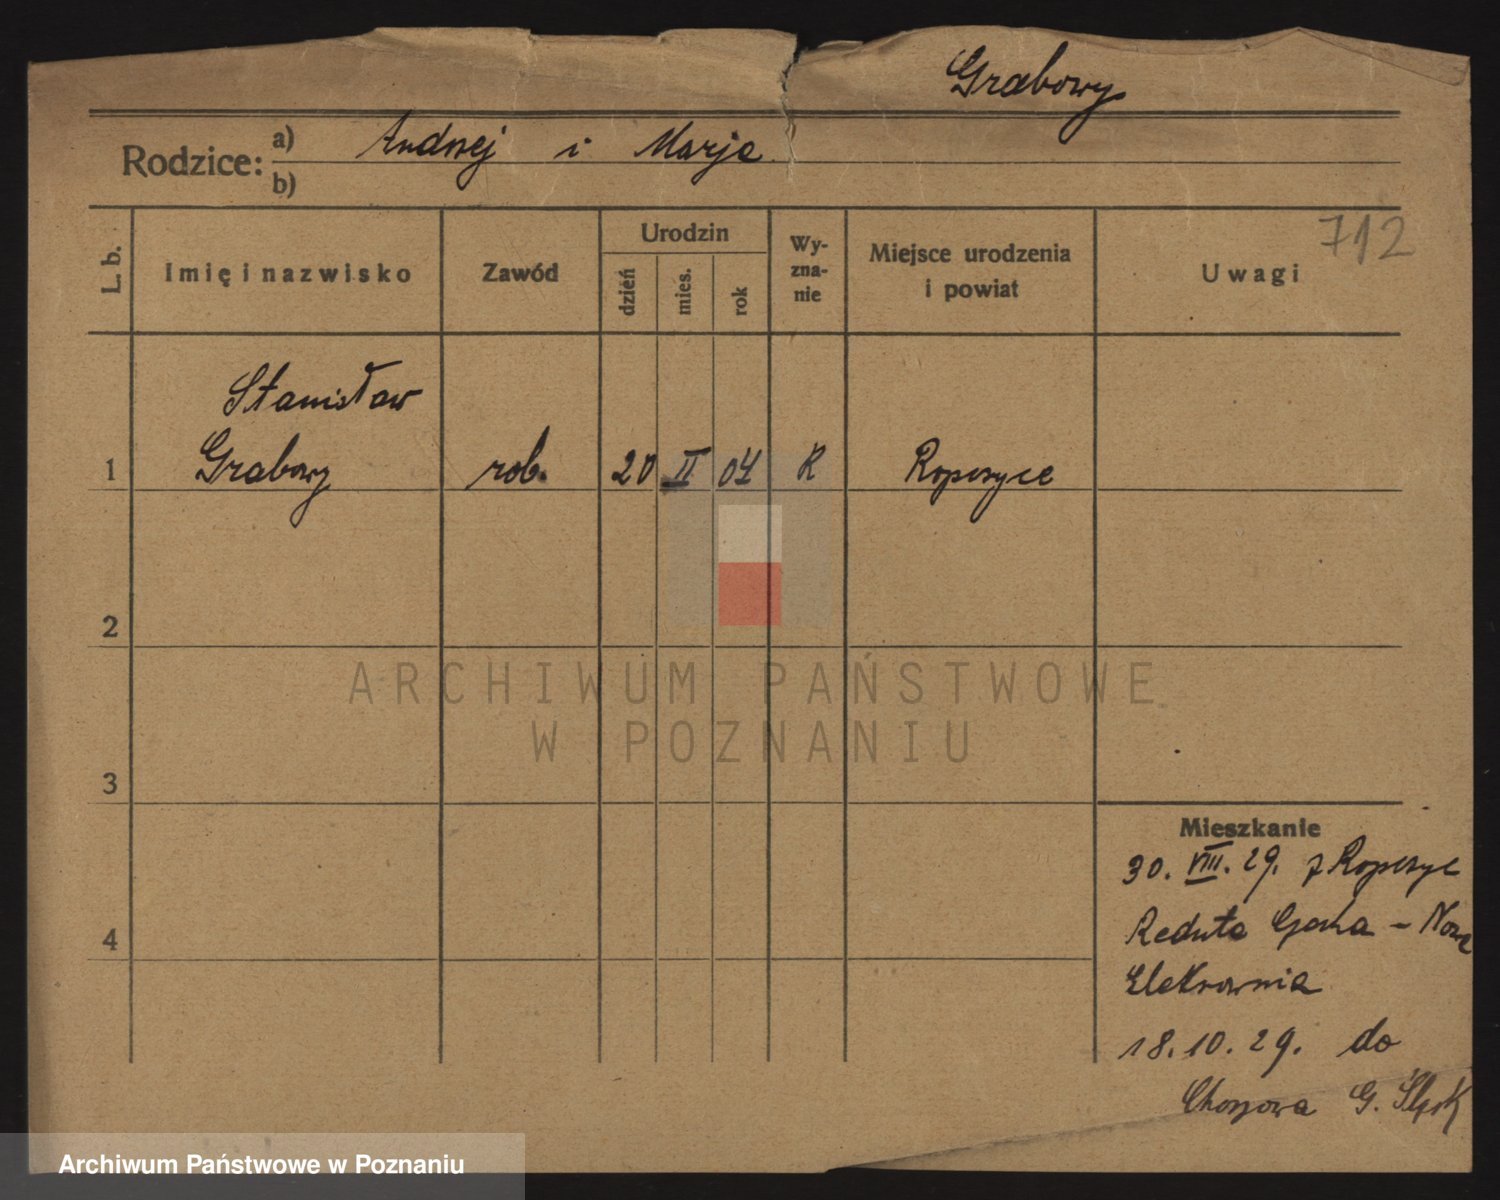 Grabowy
Rodzice: a) Andrzej i Marja
b)
L. b. Imię i nazwisko Zawód Urodzin dzień mies. rok Wy-zna-nie Miejsce urodzenia i powiat Uwagi 712
Stanisław
1 Grabowy rob. 20 II 04 R Ropczyce
2
3
4
Mieszkanie
30. VIII. 29. z Ropczyc
Reduta - Nowa
Elektrownia
18. 10. 29. do
Chorzowa G. Śląsk
ARCHIWUM PAŃSTWOWE
W POZNANIU
Archiwum Państwowe w Poznaniu